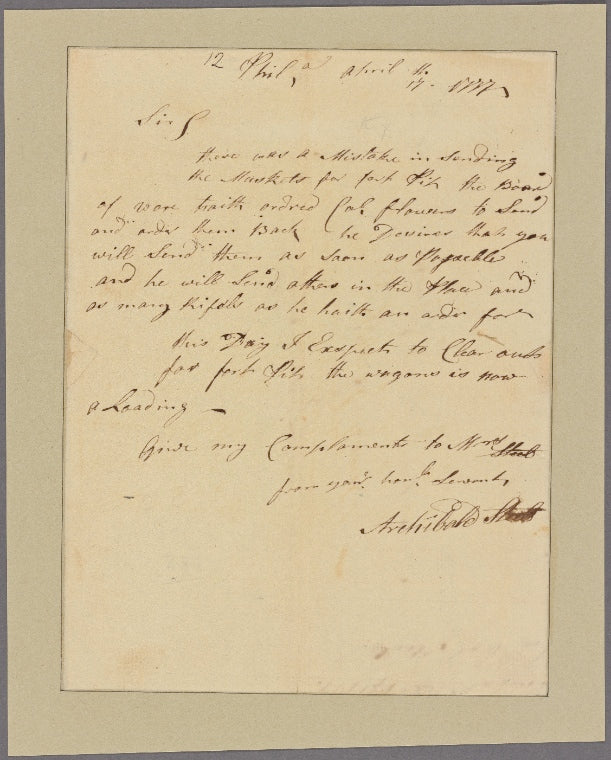 12 Phila, april 17th 1777
Sir
there was a Mistake in Sending
the Muskets for fort Pit the Board
of wore haith ordred Col. flowers to Send
and order them Back he Desires that you
will Send them as Soon as Posseble
and he will Send others in the Place and
as many Rifels as he haith an order for
this Day I Exspect to Clear out
for fort Pit the wagons is now
a Loading
Give my Complaments to Mrs Steel
from your Servant,
Archibald Steel